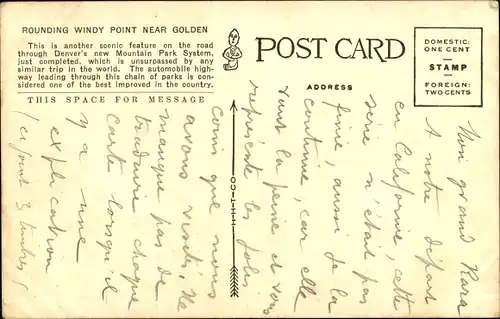 ROUNDING WINDY POINT NEAR GOLDEN
This is another scenic feature on the road
through Denver's new Mountain Park System,
just completed, which is unsurpassed by any
similar trip in the world. The automobile high-
way leading through this chain of parks is con-
sidered one of the best improved in the country.
THIS SPACE FOR MESSAGE
POST CARD
ADDRESS
DOMESTIC:
ONE CENT
STAMP
FOREIGN:
TWO CENTS
OCC-T-H-H
Mon grand Rara
A notre départ
en Californie, cette
série n'était pas
finie, aussi je la
continue, car elle
vaut la peine et vous
représente les jolis
coins que nous
avons visités. Ne
manque pas de
traduire chaque
carte lorsqu'il
y a une
explication
(ci joint 3 timbres)